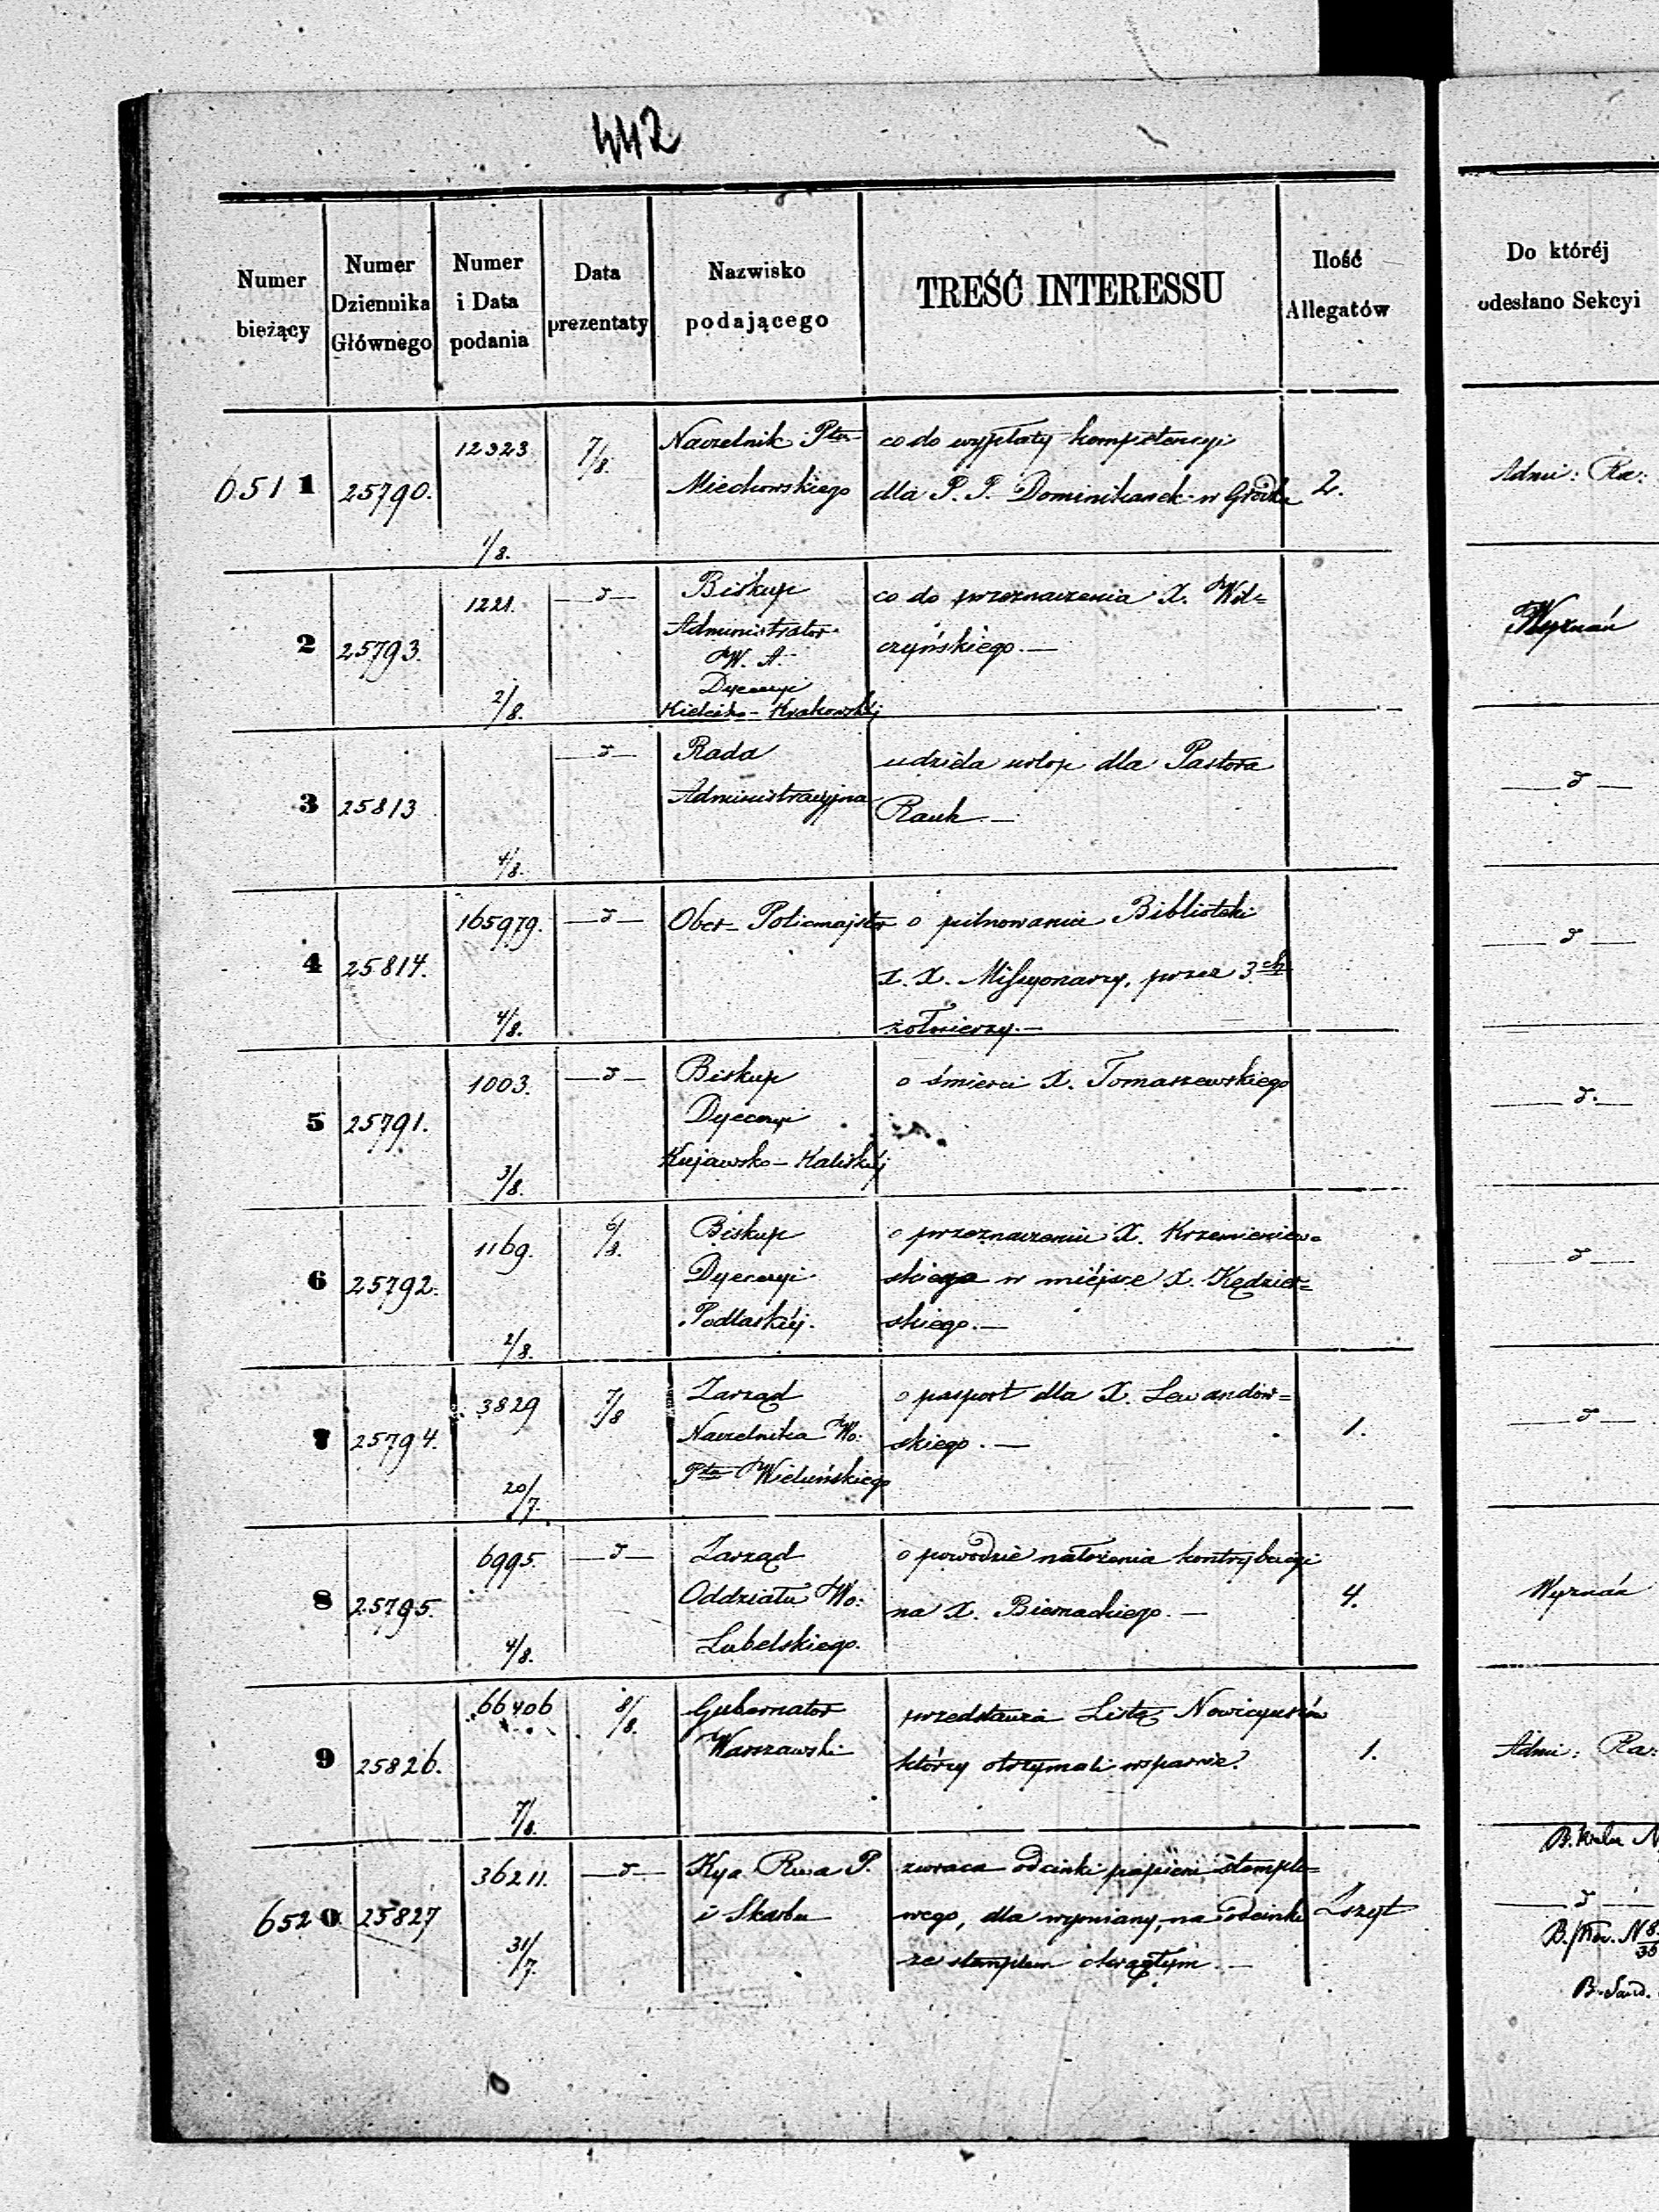 442
Numer bieżący
Numer Dziennika Głównego
Numer i Data podania
Data prezentaty
Nazwisko podającego
TREŚĆ INTERESSU
Ilość Allegatów
Do któréj odesłano Sekcyi
6511 25790. 12323 1/8. 7/8. Naczelnik Ptu Miechowskiego
co do wypłaty kompetencyi
dla P. P. Dominikanek w Gródku 2. Admi: Ra:
2 25793. 1221. 2/8. —d— Biskup
Administrator
W. A.
Dyecezyi
Kielecko-Krakowskiéj
co do przeznaczenia X. Wil=
czyńskiego.— Wyznań
3 25813 4/8. —d— Rada
Administracyjna
udziela urlop dla Pastora
Rauh.— —d—
4 25814. 165979. 4/8. —d— Ober-Policmajster
o pilnowaniu Biblioteki
X. X. Missyonarzy, przez 3ch
żołnierzy.— —d—
5 25791. 1003. 3/8. —d— Biskup
Dyecezyi
Kujawsko-Kaliskiéj
o śmierci X. Tomaszewskiego —d.—
6 25792. 1169. 2/8. 6/8. Biskup
Dyecezyi
Podlaskiéj.
o przeznaczeniu X. Krzemieniew=
skiego w miéjsce X. Kędzier=
skiego.— —d—
7 25794. 3829 20/7. 7/8 Zarząd
Naczelnika Wo:
Ptu Wieluńskiego
o pasport dla X. Lewandow=
skiego.— 1. —d—
8 25795. 6995. 4/8. —d— Zarząd
Oddziału Wo:
Lubelskiego.
o powodzie nałożenia kontrybucyi
na X. Biernackiego.— 4. Wyznań
9 25826. 66406 7/8. 8/8. Gubernator
Warszawski
przedstawia Listę Nowicyuszów
którzy otrzymali wsparcie. 1. Admi: Ra:
6520 25827 36211. 31/7. —d— Kya Rwa P.
i Skarbu
zwraca odcinki papieru stemplo=
wego, dla wymiany, na odcinki
ze stemplem okrągłym.— —d—